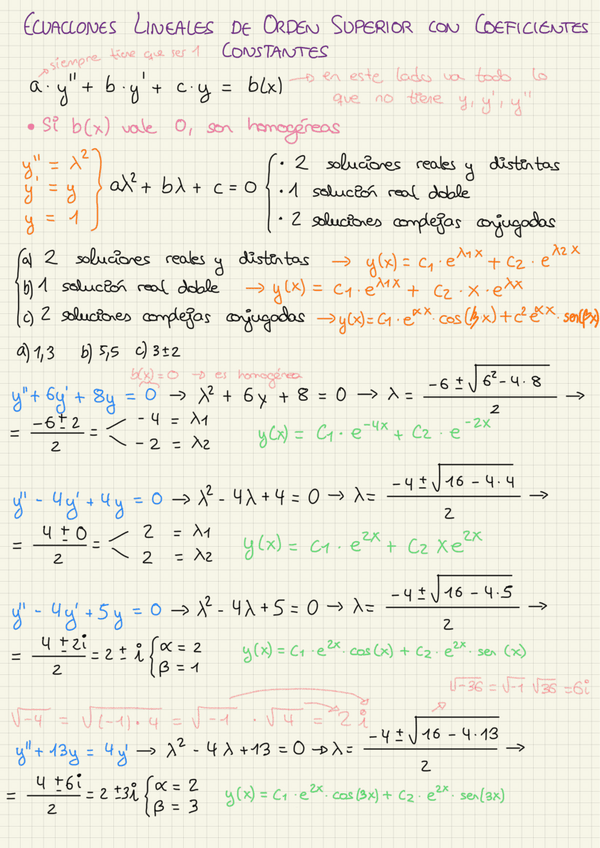 ECUACIONES LINEALES DE ORDEN SUPERIOR CON COEFICIENTES
CONSTANTES
siempre tiene que ser 1
a · y'' + b · y' + c · y = b(x) → en este lado va todo lo
que no tiene y, y', y''
• Si b(x) vale 0, son homogéneas
y'' = λ²
y' = y
y = 1
aλ² + bλ + c = 0
· 2 soluciones reales y distintas
· 1 solución real doble
· 2 soluciones complejas conjugadas
a) 2 soluciones reales y distintas → y(x) = C1 · e^λ1x + C2 · e^λ2x
b) 1 solución real doble → y(x) = C1 · e^λ1x + C2 · x · e^λx
c) 2 soluciones complejas conjugadas → y(x) = C1 · e^αx · cos(βx) + c² e^αx · sen(βx)
a) 1,3 b) 5,5 c) 3±2
b(x) = 0 → es homogénea
y'' + 6y' + 8y = 0 → λ² + 6y + 8 = 0 → λ = (-6 ± √(6² - 4·8))/2 →
= (-6±2)/2 = -4 = λ1
-2 = λ2
y(x) = C1 · e^-4x + C2 · e^-2x
y'' - 4y' + 4y = 0 → λ² - 4λ + 4 = 0 → λ = (-4 ± √(16 - 4·4))/2 →
= (4 ± 0)/2 = 2 = λ1
2 = λ2
y(x) = C1 · e^2x + C2 x e^2x
y'' - 4y' + 5y = 0 → λ² - 4λ + 5 = 0 → λ = (-4 ± √(16 - 4·5))/2 →
= (4 ± 2i)/2 = 2 ± i { α = 2
β = 1
y(x) = C1 · e^2x · cos(x) + C2 · e^2x · sen (x)
√-36 = √-1 √36 = 6i
√-4 = √(-1)·4 = √-1 · √4 = 2i
y'' + 13y = 4y' → λ² - 4λ + 13 = 0 → λ = (-4 ± √(16 - 4·13))/2 →
= (4 ± 6i)/2 = 2 ± 3i { α = 2
β = 3
y(x) = C1 · e^2x · cos(3x) + C2 · e^2x · sen(3x)